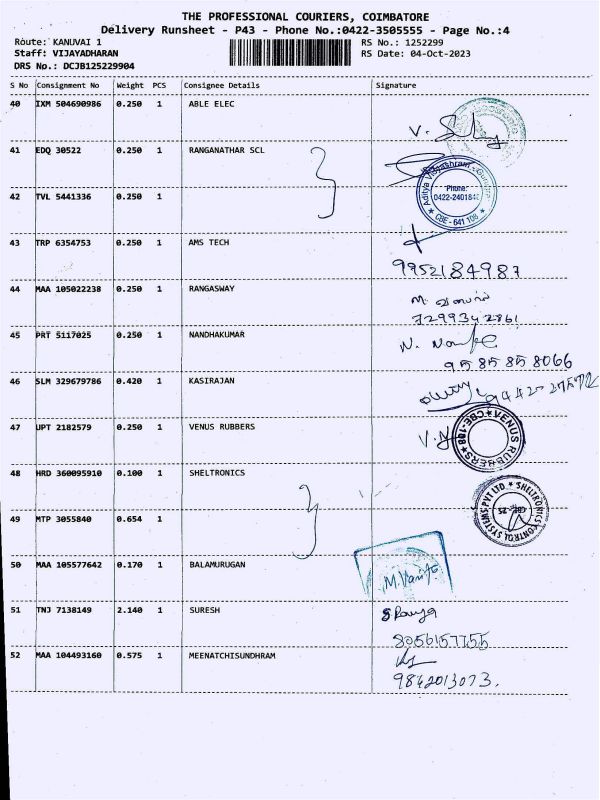 THE PROFESSIONAL COURIERS, COIMBATORE
Delivery Runsheet - P43 - Phone No.:0422-3505555 - Page No.:4
Route: KANUVAI 1 RS No.: 1252299
Staff: VIJAYADHARAN RS Date: 04-Oct-2023
DRS No.: DCJB125229904
S No Consignment No Weight PCS Consignee Details Signature
40 IXM 504690986 0.250 1 ABLE ELEC
V.
41 EDQ 30522 0.250 1 RANGANATHAR SCL
Aditya Vidyashram
Phone:
0422-2401848
CBE - 641 108
42 TVL 5441336 0.250 1
43 TRP 6354753 0.250 1 AMS TECH
9952184987
44 MAA 105022238 0.250 1 RANGASWAY
M.
7299342861
45 PRT 5117025 0.250 1 NANDHAKUMAR
N.
9585858066
46 SLM 329679786 0.420 1 KASIRAJAN
47 UPT 2182579 0.250 1 VENUS RUBBERS
VENUS RUBBERS CBE-108
48 HRD 360095910 0.100 1 SHELTRONICS
SHELTRONICS CONTROL SYSTEMS PVT LTD.
49 MTP 3055840 0.654 1
50 MAA 105577642 0.170 1 BALAMURUGAN
51 TNJ 7138149 2.140 1 SURESH
8056157755
52 MAA 104493160 0.575 1 MEENATCHISUNDHRAM
9842013073.